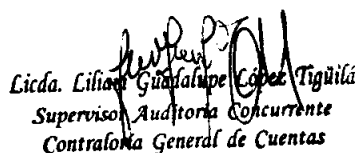 Licda. Lilian Guadalupe López Tigüilá
Supervisor Auditoria Concurrente
Contraloría General de Cuentas